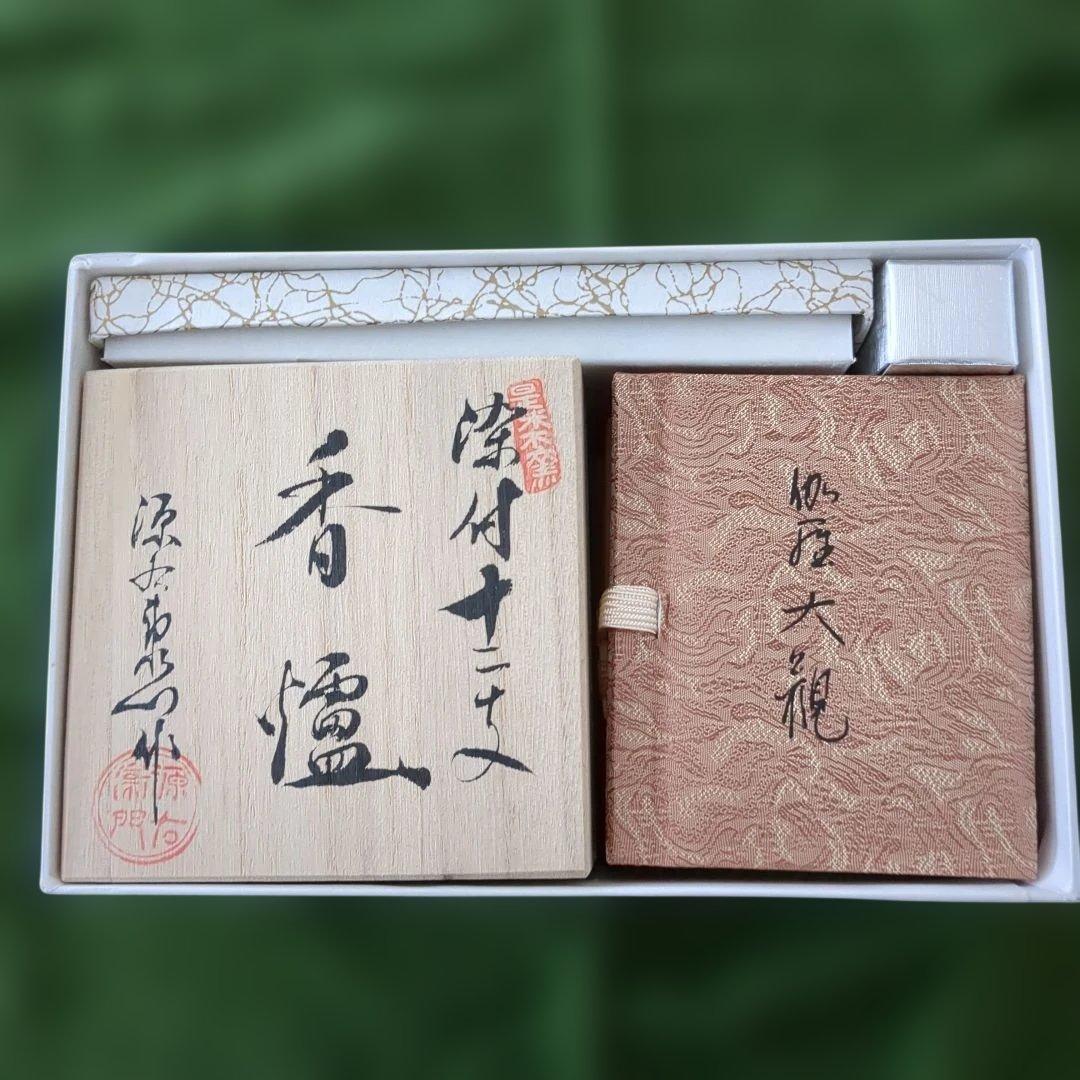 染付十二支
香爐
源右衛門作
源右
衛門
伽羅大觀